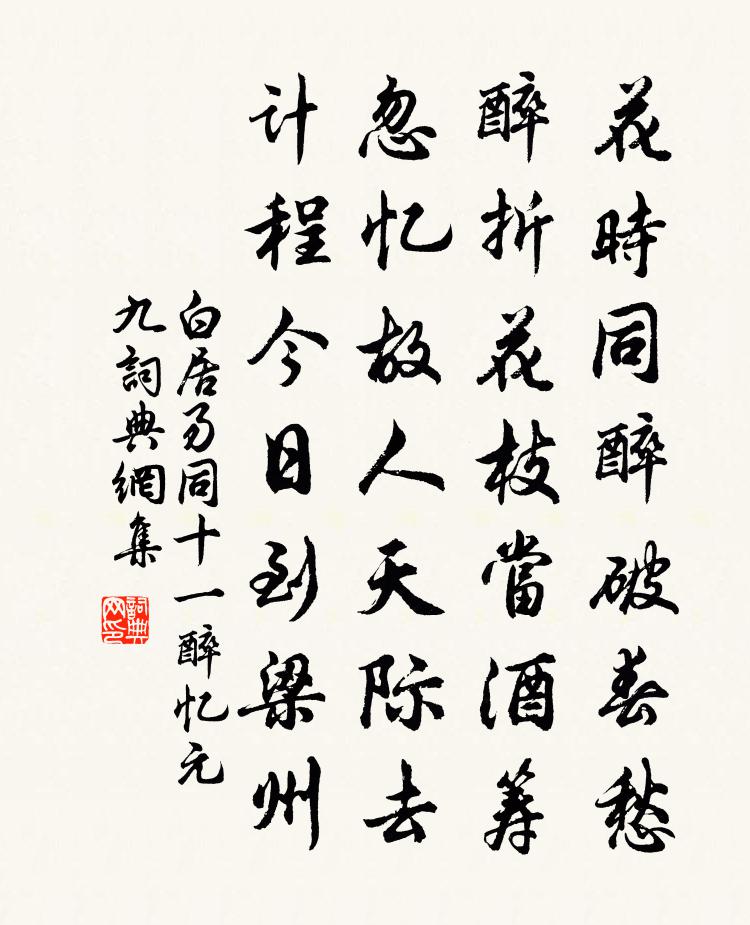 花時同醉破春愁
醉折花枝當酒筹
忽忆故人天际去
计程今日到梁州
白居易同十一醉忆元
九詞典網集
詞典网印